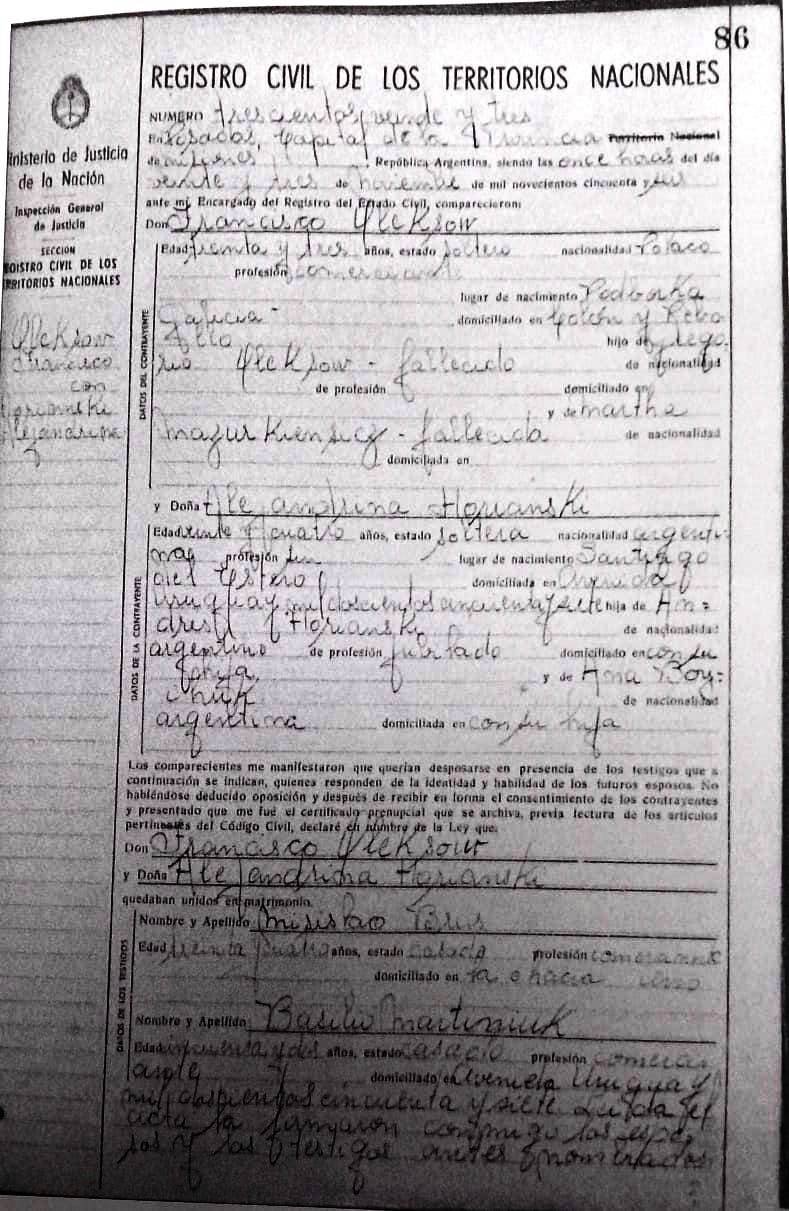 86
REGISTRO CIVIL DE LOS TERRITORIOS NACIONALES
Ministerio de Justicia
de la Nación
Inspección General
de Justicia
SECCION
REGISTRO CIVIL DE LOS
TERRITORIOS NACIONALES
Oleksow
Francisco
con
Florianski
Alejandrina
NUMERO trescientos veinte y tres
En Posadas, Capital de la Provincia Territorio Nacional
de misiones, República Argentina, siendo las once horas del día
veinte y tres de noviembre de mil novecientos cincuenta y seis
ante mí, Encargado del Registro del Estado Civil, comparecieron:
Don Francisco Oleksow
DATOS DEL CONTRAYENTE
Edad treinta y tres años, estado soltero nacionalidad Polaco
profesión comerciante
lugar de nacimiento Podborka
Galicia - domiciliado en Colón y
hijo de
Oleksow - fallecido de nacionalidad
de profesión domiciliado en
y de martha
mazurkiewicz - fallecida de nacionalidad
domiciliada en
y Doña Alejandrina Florianski
DATOS DE LA CONTRAYENTE
Edad veinte y cuatro años, estado soltera nacionalidad argenti
na profesión sin lugar de nacimiento Santiago
del Estero domiciliada en Avenida
Uruguay mil doscientos cincuenta y siete hija de An=
dres Florianski de nacionalidad
argentino de profesión jubilado domiciliado en con su
hija y de Ana Boy=
chuk de nacionalidad
argentina domiciliada en con su hija
Los comparecientes me manifestaron que querían desposarse en presencia de los testigos que a
continuación se indican, quienes responden de la identidad y habilidad de los futuros esposos. No
habiéndose deducido oposición y después de recibir en forma el consentimiento de los contrayentes
y presentado que me fué el certificado prenupcial que se archiva, previa lectura de los artículos
pertinentes del Código Civil, declaré en nombre de la Ley que:
Don Francisco Oleksow
y Doña Alejandrina Florianski
quedaban unidos en matrimonio.
DATOS DE LOS TESTIGOS
Nombre y Apellido Brus
Edad treinta y cuatro años, estado casado profesión comerciante
domiciliado en la chacra
Nombre y Apellido Basilio Martiniuk
Edad cincuenta y dos años, estado casado profesión comerci
ante domiciliado en Avenida Uruguay
mil doscientos cincuenta y siete Leída el
acta la firmaron conmigo los espo=
sos y los testigos antes nominados